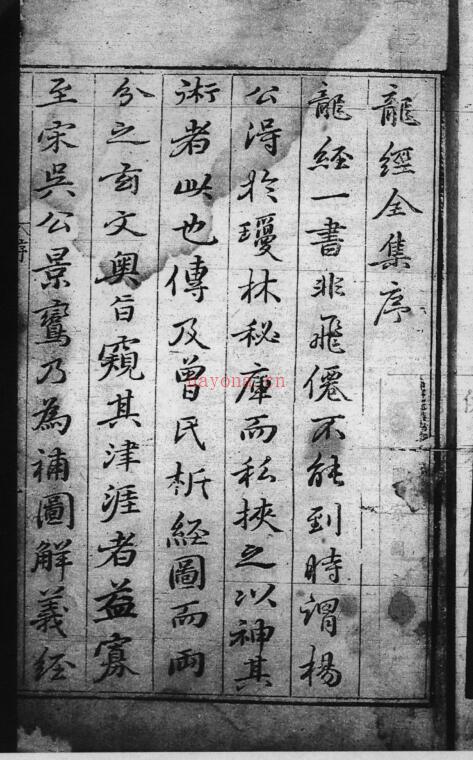 龍經全集序
龍經一書非飛僊不能到時謂楊
公得於瓊林秘庫而私挾之以神其
術者此也傳及曾氏析經圖而兩
分之玄文奧旨窺其津涯者益寡
至宋吳公景鸞乃為補圖解義經